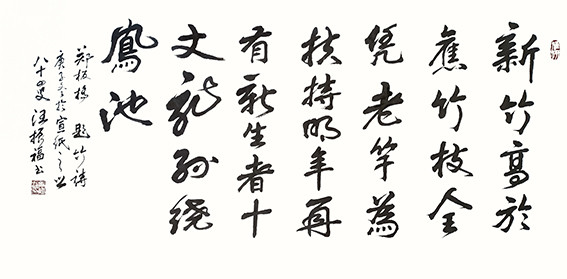 新竹高於
舊竹枝全
凭老竿為
扶持明年再
有新生者十
丈龍孫繞
鳳池
鄭板橋 題竹詩
庚子冬於宣紙之鄉
八十叟汪振福書